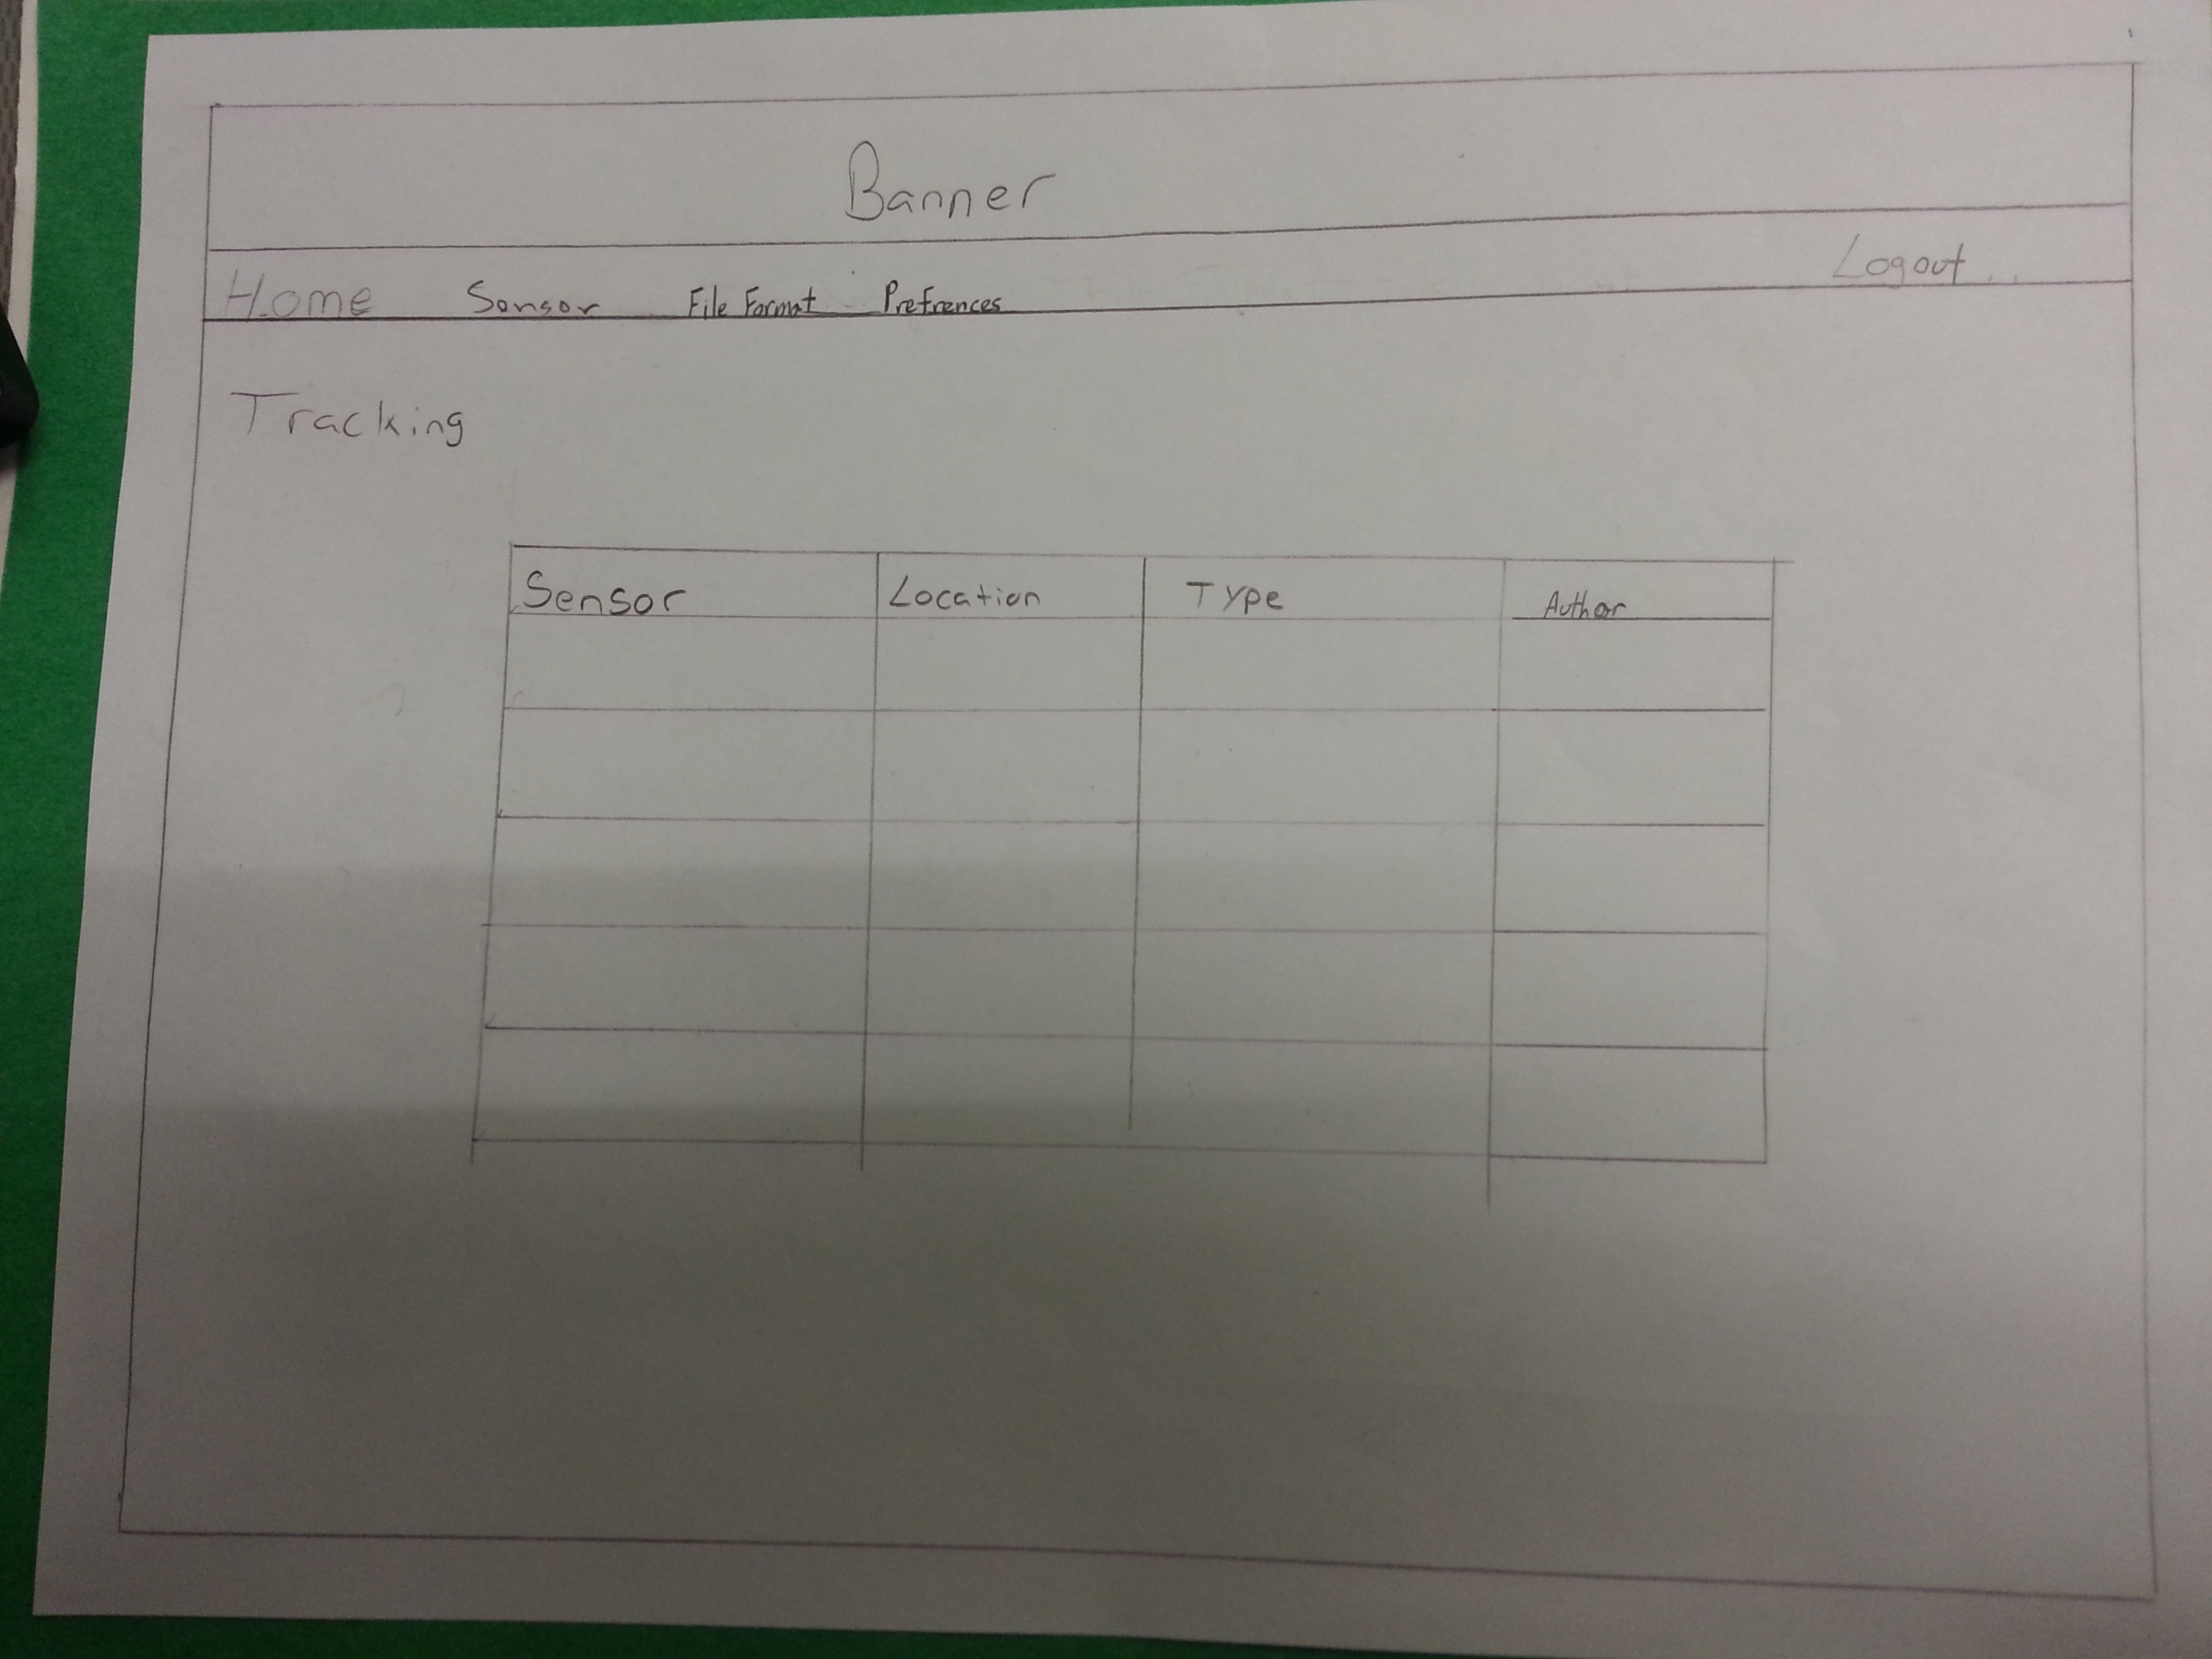 Banner
Home Sensor File Format Prefrences Logout
Tracking
Sensor Location Type Author